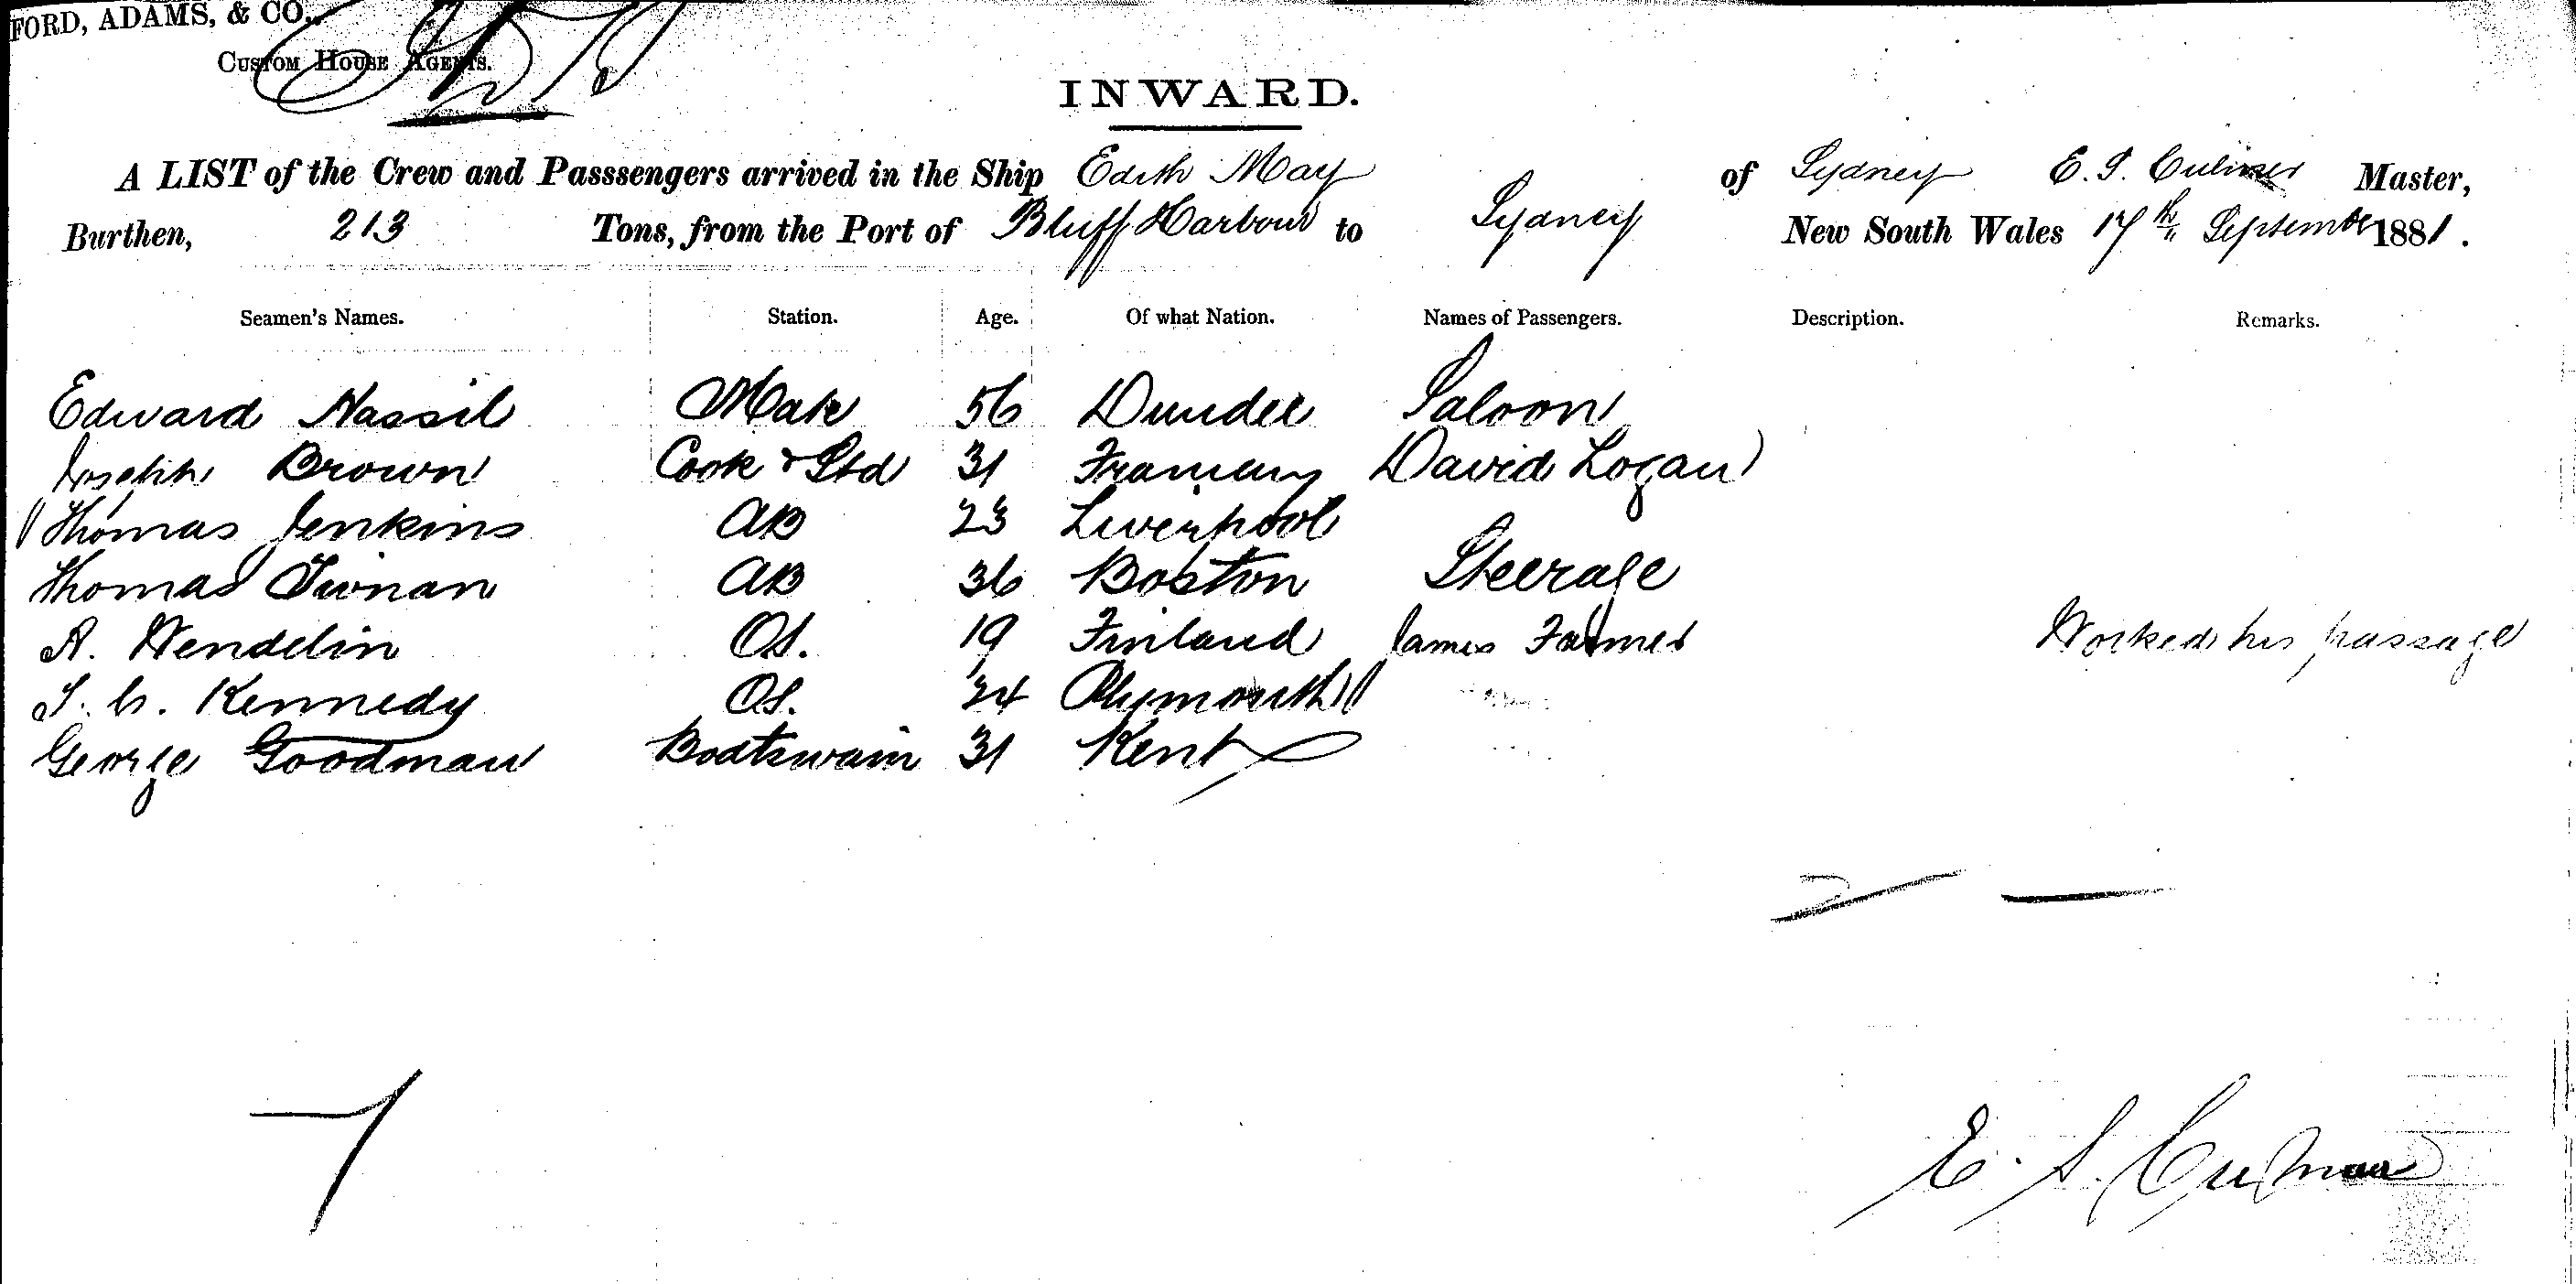 FORD, ADAMS, & CO.,
CUSTOM HOUSE AGENTS.
INWARD.
A LIST of the Crew and Passsengers arrived in the Ship Edith May of Sydney E. S. Culmer Master,
Burthen, 213 Tons, from the Port of Bluff Harbour to Sydney New South Wales 17th September 1881.
Seamen's Names. Station. Age. Of what Nation. Names of Passengers. Description. Remarks.
Edward Nassil Mate 56 Dundee Saloon
Joseph Brown Cook & Std 31 David Logan
Thomas Jenkins AB 23 Liverpool
Thomas AB 36 Boston Steerage
A. Wendelin OS. 19 Finland James Farmer Worked his passage
Kennedy OS. 24 Plymouth
George Goodman Boatswain 31 Kent
2 —
7
E. S. Culmer